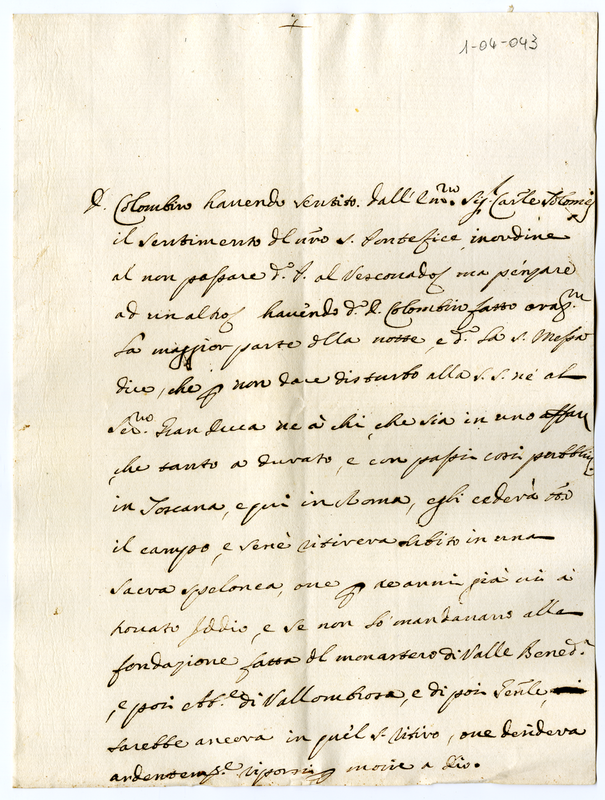 1-04-043
P. Colombino havendo sentito dall' Em.mo Sig.r Card.le Tolomei
il sentimento del nro S. Pontefice inordine
al non passare d.o P. al Vescovado, ma pensare
ad un altro, havendo d.o P. Colombino fatto oraz.ne
la maggior parte della notte, e d.o la S. Messa
dice, che p non dare disturbo alla S. S. né al
Ser.mo Gran Duca ne à chi, che sia in uno affare
che tanto a durato, e con passi così pubblici
in Toscana, e qui in Roma, egli cederà
il campo, e sene ritirera subito in una
sacra spelonca, ove p tre anni già vi à
trovato Iddio, e se non lo mandavano alla
fondazione fatta del monastero di Valle Bened.a
, e poi Abb.e di Vallombrosa, e di poi Gen.le,
sarebbe ancora in quel s. ritiro, ove desidera
ardentem.te riporsi p morire a Dio.